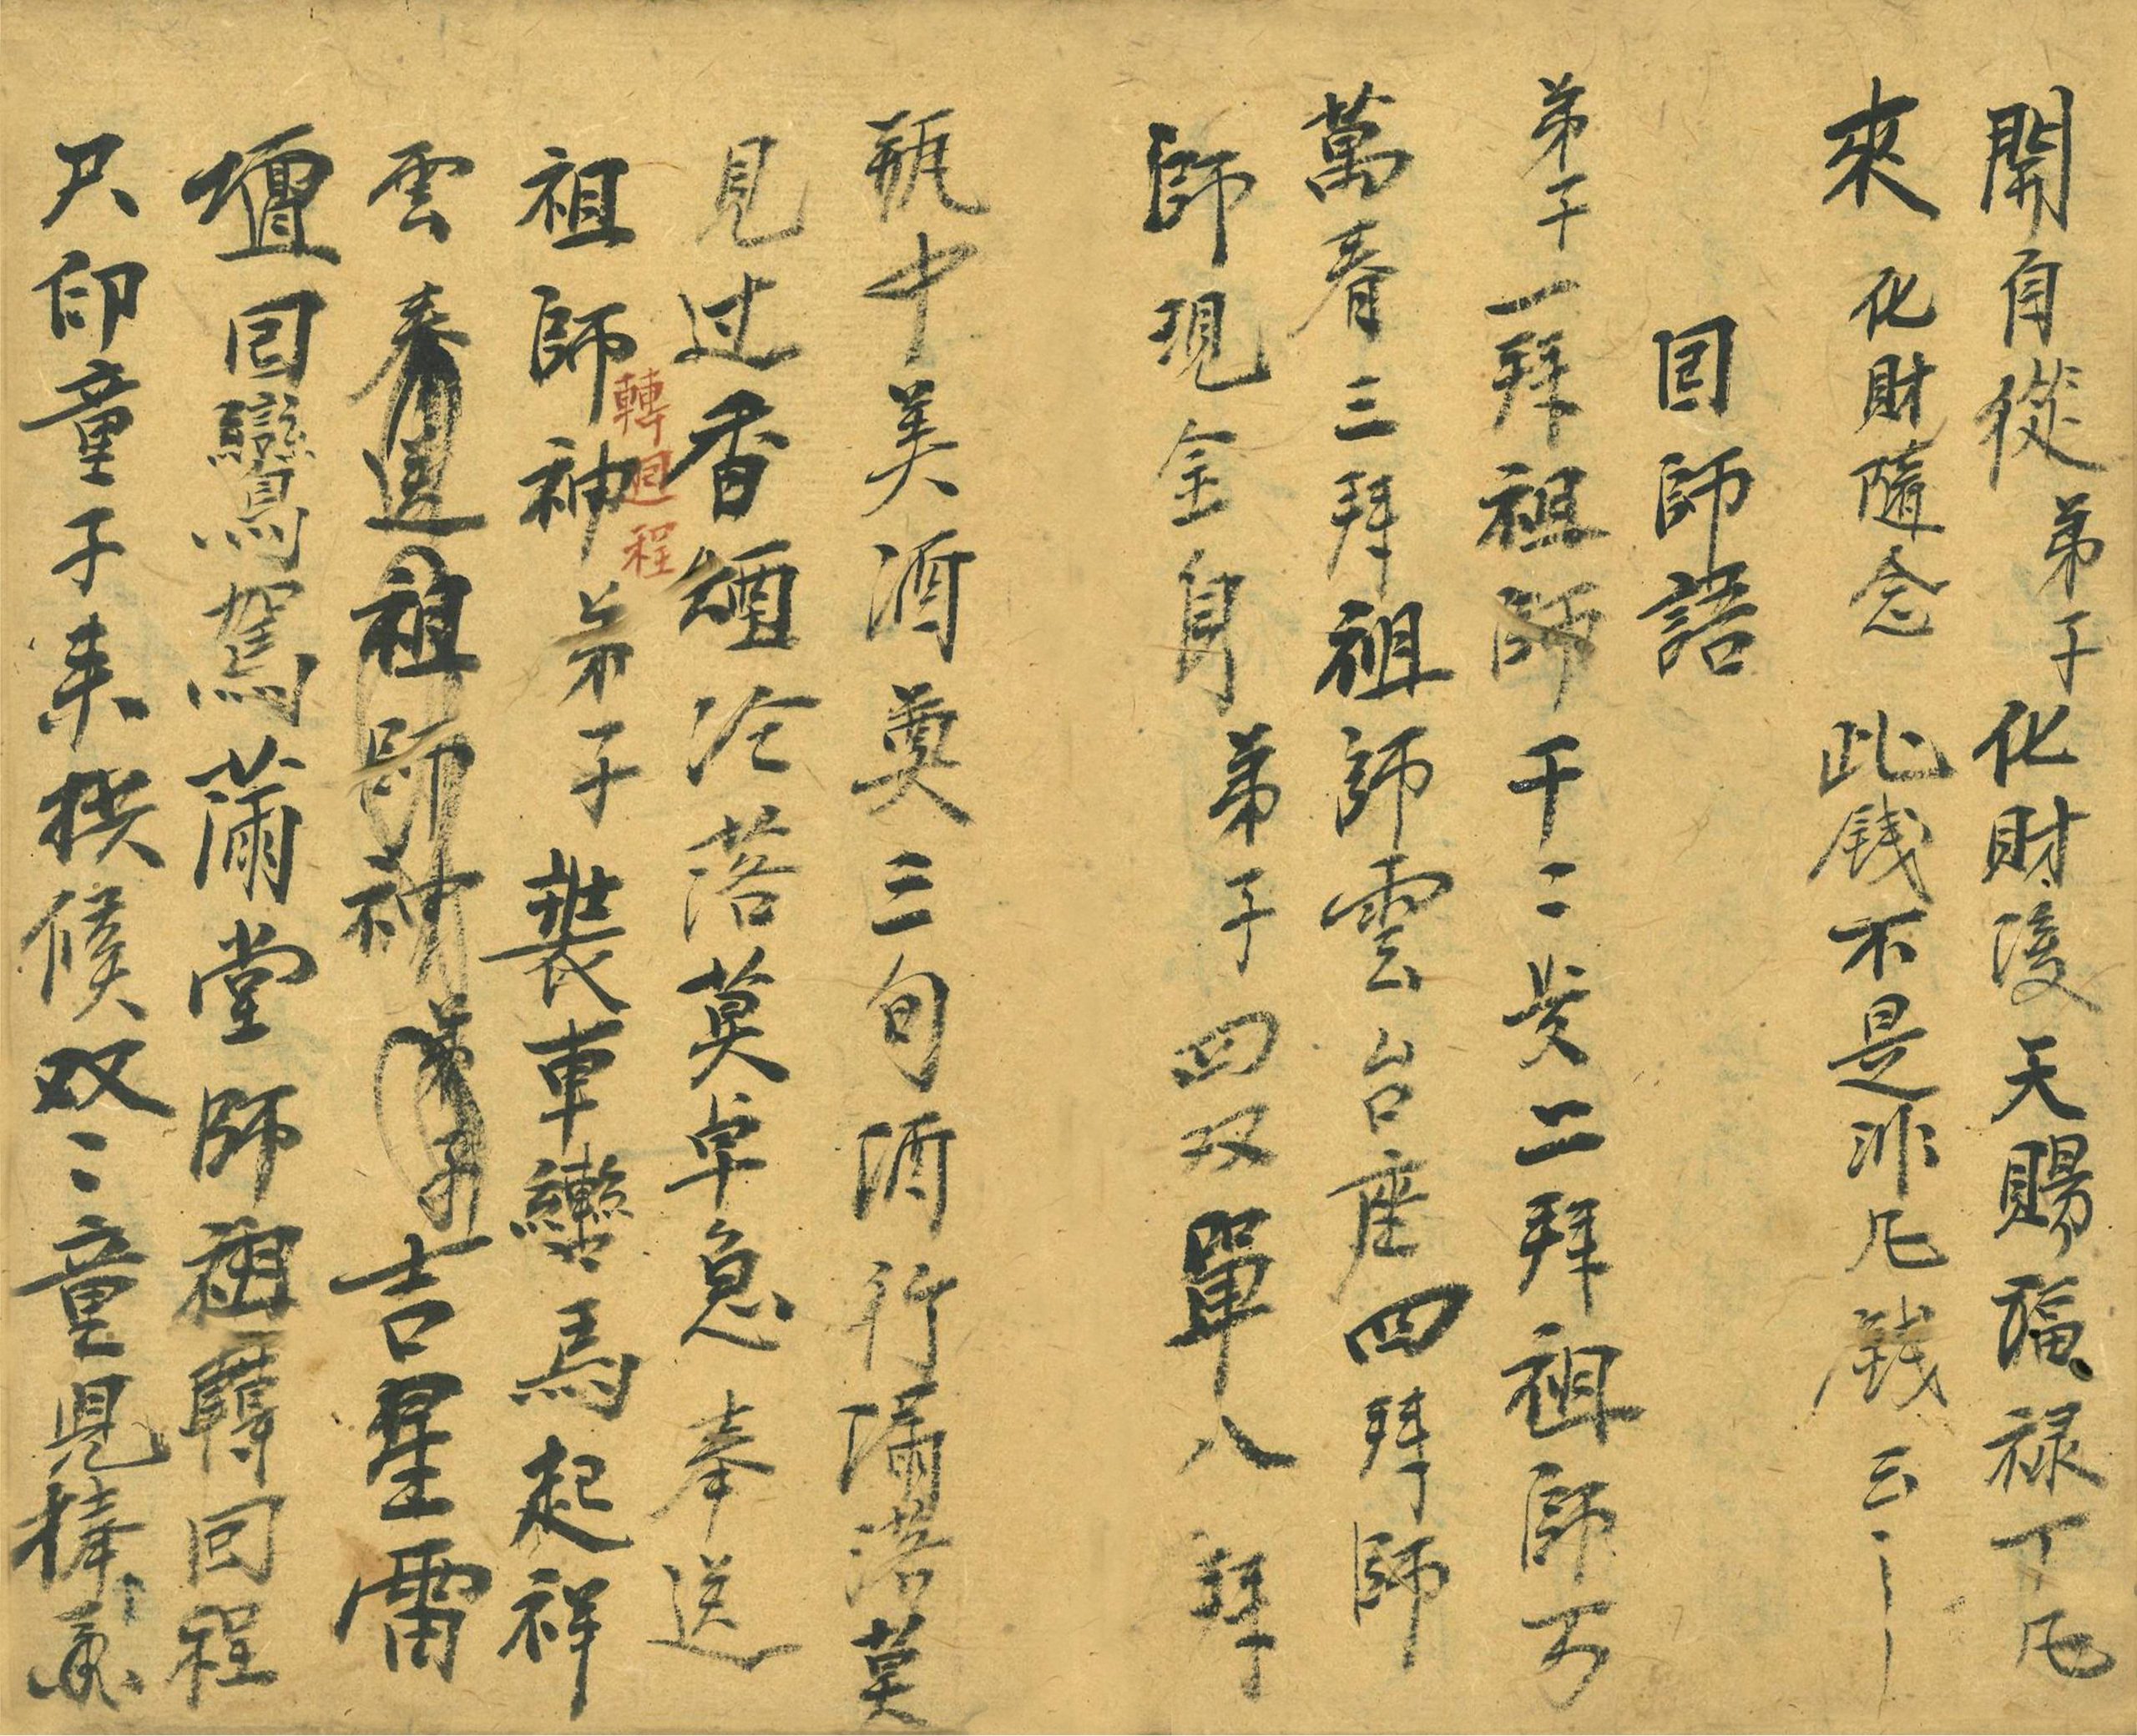 開自從弟子化財後天賜福祿丁凡
來 化財隨念 此錢不是非凡錢云〻
回師語
弟子一拜祖師千二岁二拜祖師万
萬春三拜祖師雲台座四拜師
師現金身弟子四双單八拜
瓶中美酒奠三旬酒行滿落莫
見过香烟冷落莫卓急奉送
祖師神弟子裝車轡馬起祥
轉迴程
雲奉送祖師神弟子吉星雷
壇回鸞駕滿堂師祖轉回程
尺印童子来候双〻童見捧